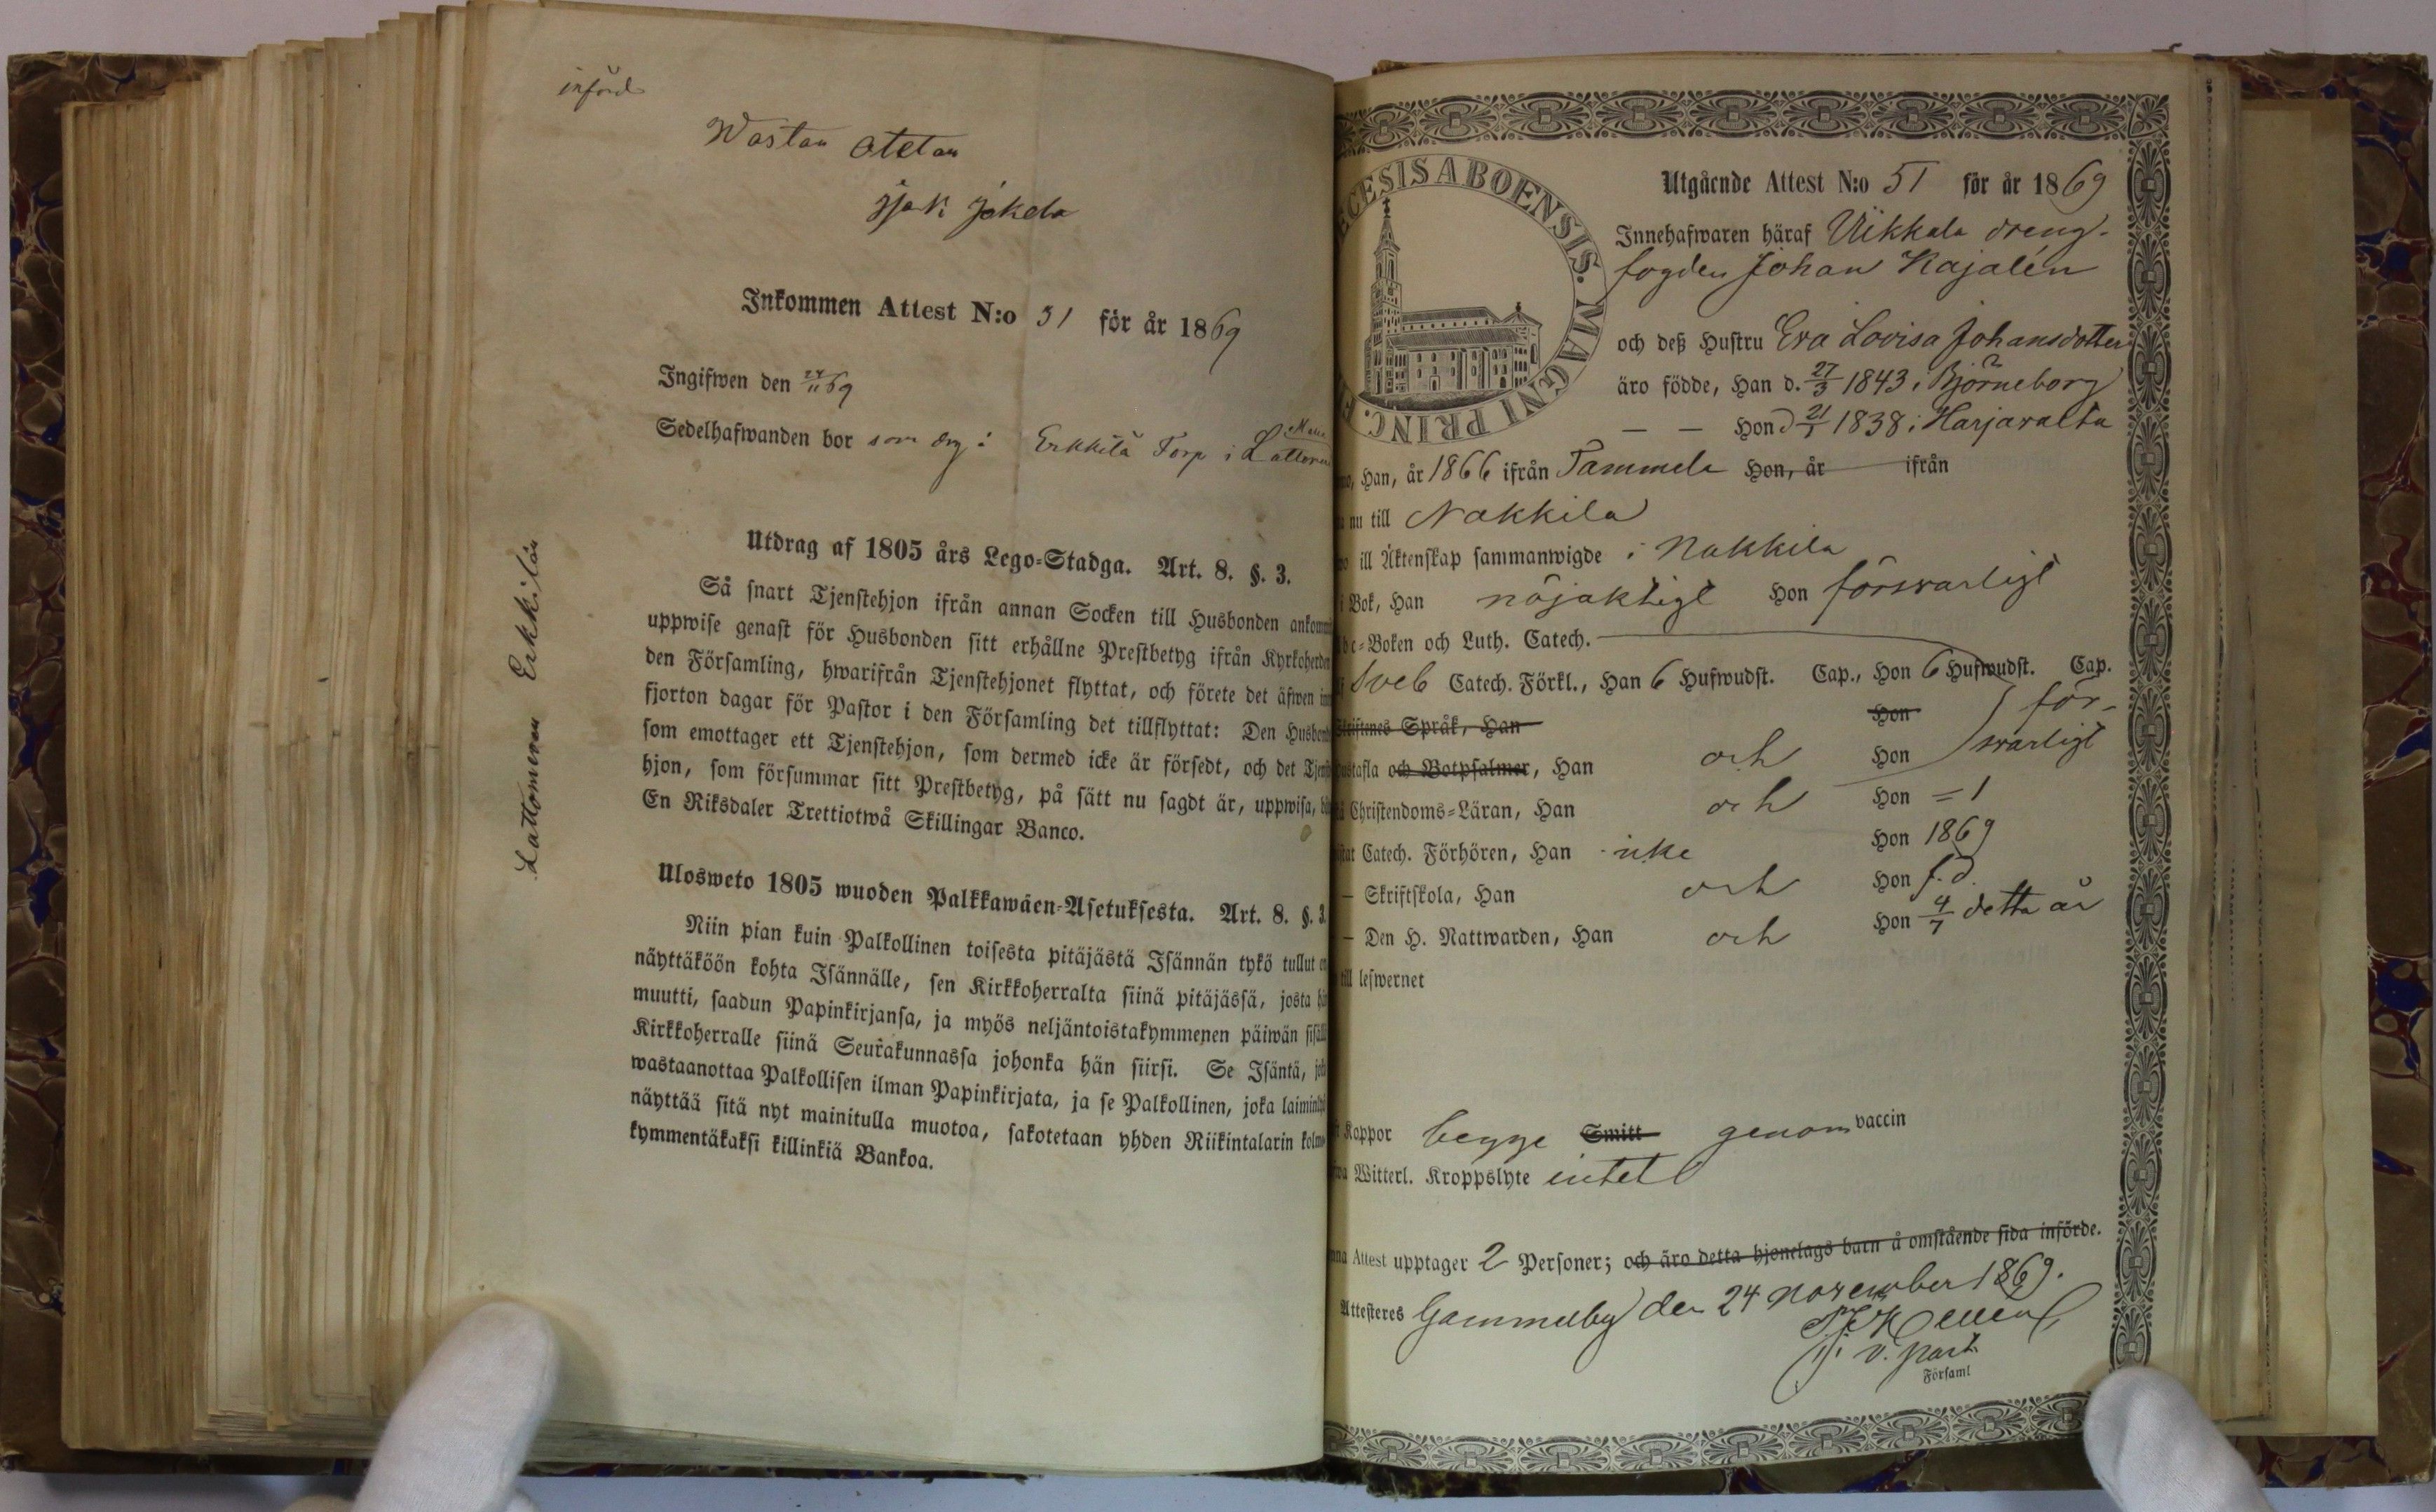 införd
Wastan otetan
Jaak Jakela
Inkommen Attest N:o 51 för år 1869
Ingifwen den 24/11 69
Sedelhafwanden bor som drg i Erkkilä Torp i
Lattomeren Erkkilän
Utdrag af 1805 års Lego-Stadga. Art. 8. §. 3.
Så snart Tjenstehjon ifrån annan Socken till Husbonden ankomm
uppwise genast för Husbonden sitt erhållne Prestbetyg ifrån Kyrkoherden
den Församling, hwarifrån Tjenstehjonet flyttat, och förete det äfwen
fjorton dagar för Pastor i den Församling det tillflyttat: Den Husbond
som emottager ett Tjenstehjon, som dermed icke är försedt, och det Tjenst
hjon, som försummar sitt Prestbetyg, på sätt nu sagdt är, uppwisa,
En Riksdaler Trettiotwå Skillingar Banco.
Ulosweto 1805 wuoden Palkkawäen-Asetuksesta. Art. 8. §. 3.
Niin pian kuin Palkollinen toisesta pitäjästä Isännän tykö tullut
näyttäköön kohta Isännälle, sen Kirkkoherralta siinä pitäjässä, josta
muutti, saadun Papinkirjansa, ja myös neljäntoistakymmenen päiwän
Kirkkoherralle siinä Seurakunnassa johonka hän siirsi. Se Isäntä,
wastaanottaa Palkollisen ilman Papinkirjata, ja se Palkollinen, joka
näyttää sitä nyt mainitulla muotoa, sakotetaan yhden Riikintalarin
kymmentäkaksi killinkiä Bankoa.
ECESIS ABOENSIS. MAGNI PRINC.
Utgående Attest N:o 51 för år 1869
Innehafwaren häraf Uikkala dreng-
fogden Johan Kajalén
och deß Hustru Eva Lovisa Johansdotter
äro födde, Han d. 27/3 1843 i Björneborg
— — Hon d 21/1 1838 i Harjavalta
Han, år 1866 ifrån Tammela Hon, år ifrån
nu till Nakkila
ill Äktenskap sammanwigde i Nakkila
Bok, Han nöjaktigt Hon försvarligt
bc-Boken och Luth. Catech.
Sveb Catech. Förkl., Han 6 Hufwudst. Cap., Hon 6 Hufwudst. Cap.
Skriftenes Språk, Han Hon för-
ustafla och Botpsalmer, Han och Hon svarligt
Christendoms-Läran, Han och Hon = 1
Catech. Förhören, Han icke Hon 1869
— Skriftskola, Han och Hon f.d.
— Den H. Nattwarden, Han och Hon 4/7 detta år
till leswernet
Koppor begge Smitt genom vaccin
Witterl. Kroppslyte intet
Attest upptager 2 Personer; och äro detta hjonelags barn å omstående sida införde.
Attesteras Gammelby den 24 november 1869.
v. past
Församl